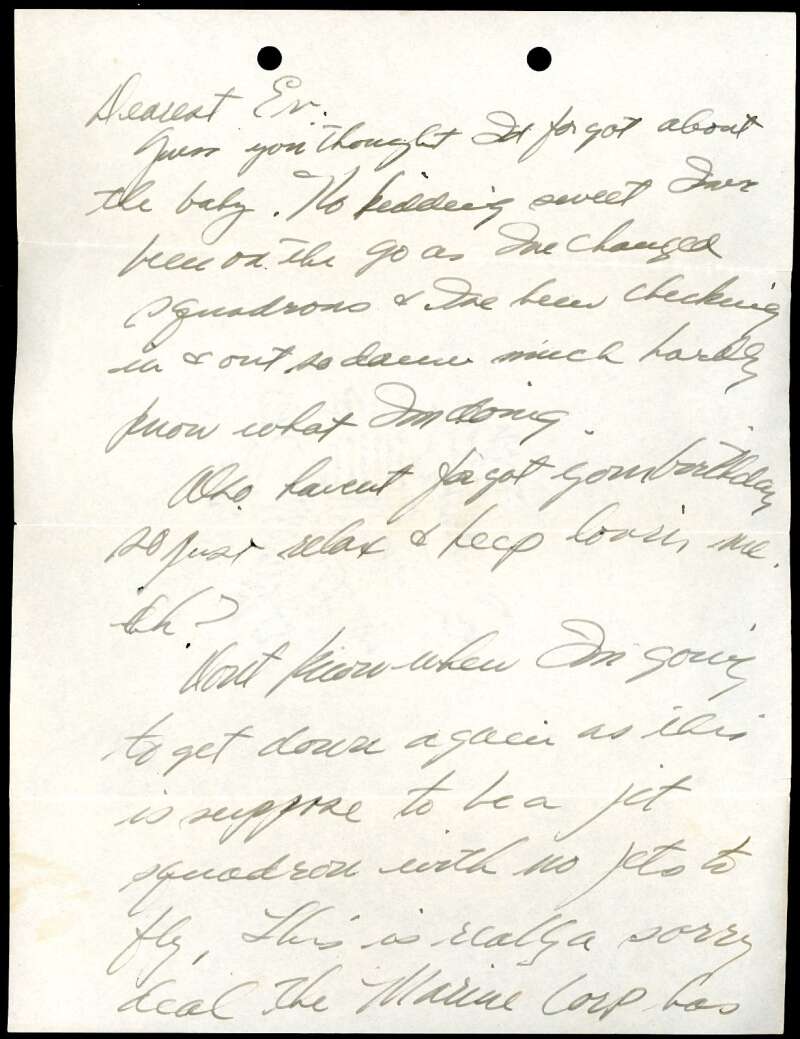 Dearest Ev.
Guess you thought I'd forgot about
the baby. No kidding sweet I've
been on the go as I've changed
squadrons & I've been checking
in & out so damn much hardly
know what I'm doing.
Also havent forgot your birthday
so just relax & keep lovin me.
Eh?
Dont know when I'm going
to get down again as this
is suppose to be a jet
squadron with no jets to
fly, this is really a sorry
deal the Marine Corp has